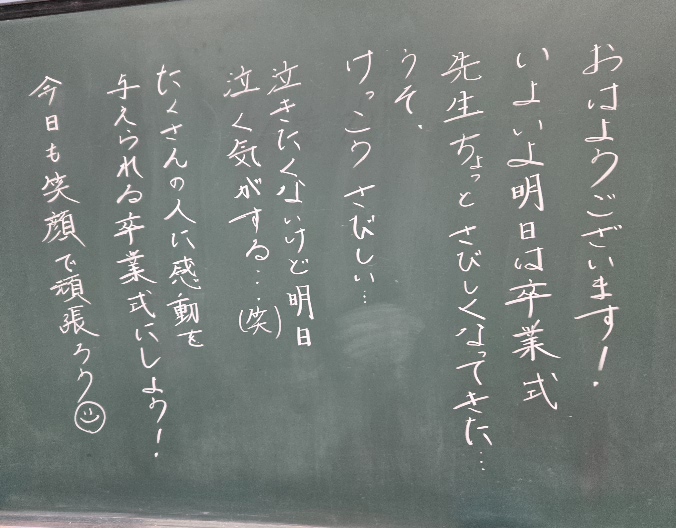 おはようございます!
いよいよ明日は卒業式
先生ちょっとさびしくなってきた…
うそ、
けっこうさびしい…
泣きたくないけど明日
泣く気がする…(笑)
たくさんの人に感動を
与えられる卒業式にしよう!
今日も笑顔で頑張ろう☺